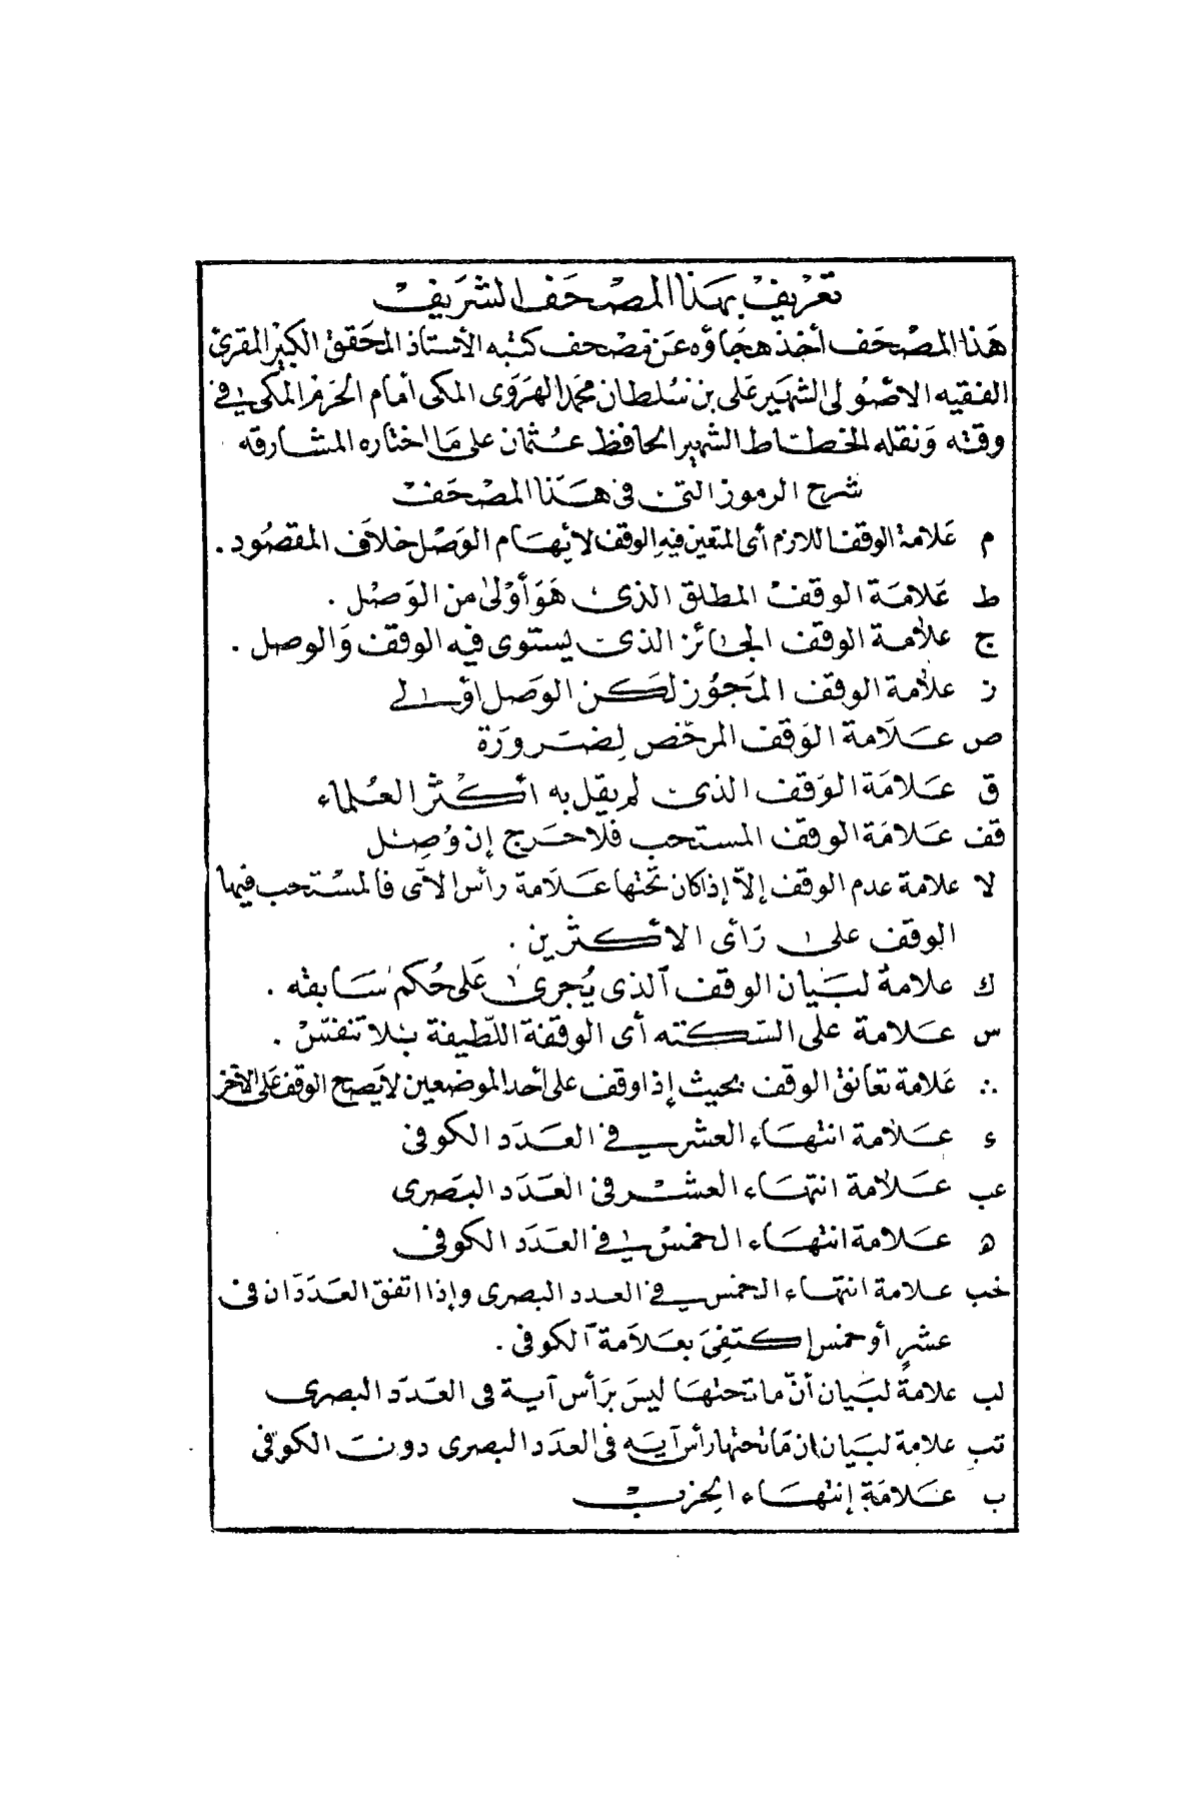 تعريف بهذا المصحف الشريف
هذا المصحف أخذ هجاؤه عن مصحف كتبه الأستاذ المحقق الكبير المقرئ
الفقيه الاصولى الشهير على بن سلطان محمد الهروى المكى أمام الحرم المكى فى
وقته ونقله الخطاط الشهير الحافظ عثمان على ما اختاره المشارقه
شرح الرموز التى فى هذا المصحف
م علامة الوقف اللازم أى المتعين فيه الوقف لأيهام الوصل خلاف المقصود .
ط علامة الوقف المطلق الذى هو أولى من الوصل .
ج علامة الوقف الجائز الذى يستوى فيه الوقف والوصل .
ز علامة الوقف المجوز لكن الوصل اولى
ص علامة الوقف المرخص لضرورة
ق علامة الوقف الذى لم يقل به أكثر العلماء
قف علامة الوقف المستحب فلا حرج إن وصل
لا علامة عدم الوقف إلا إذا كان تحتها علامة رأس الآى فالمستحب فيها
الوقف على رأى الأكثرين .
ك علامة لبيان الوقف الذى يجرى على حكم سابقه .
س علامة على السكته أى الوقفة اللطيفة بلا تنفس .
∴ علامة تعانق الوقف بحيث إذا وقف على أحد الموضعين لا يصح الوقف على الآخر
ء علامة انتهاء العشر فى العدد الكوفى
عب علامة انتهاء العشر فى العدد البصرى
ه علامة انتهاء الخمس فى العدد الكوفى
خب علامة انتهاء الخمس فى العدد البصرى وإذا اتفق العددان فى
عشر أو خمس إكتفى بعلامة الكوفى .
لب علامة لبيان أن ما تحتها ليس برأس آية فى العدد البصرى
تب علامة لبيان ان ما تحتها رأس آيه فى العدد البصرى دون الكوفى
ب علامة إنتهاء الحزب